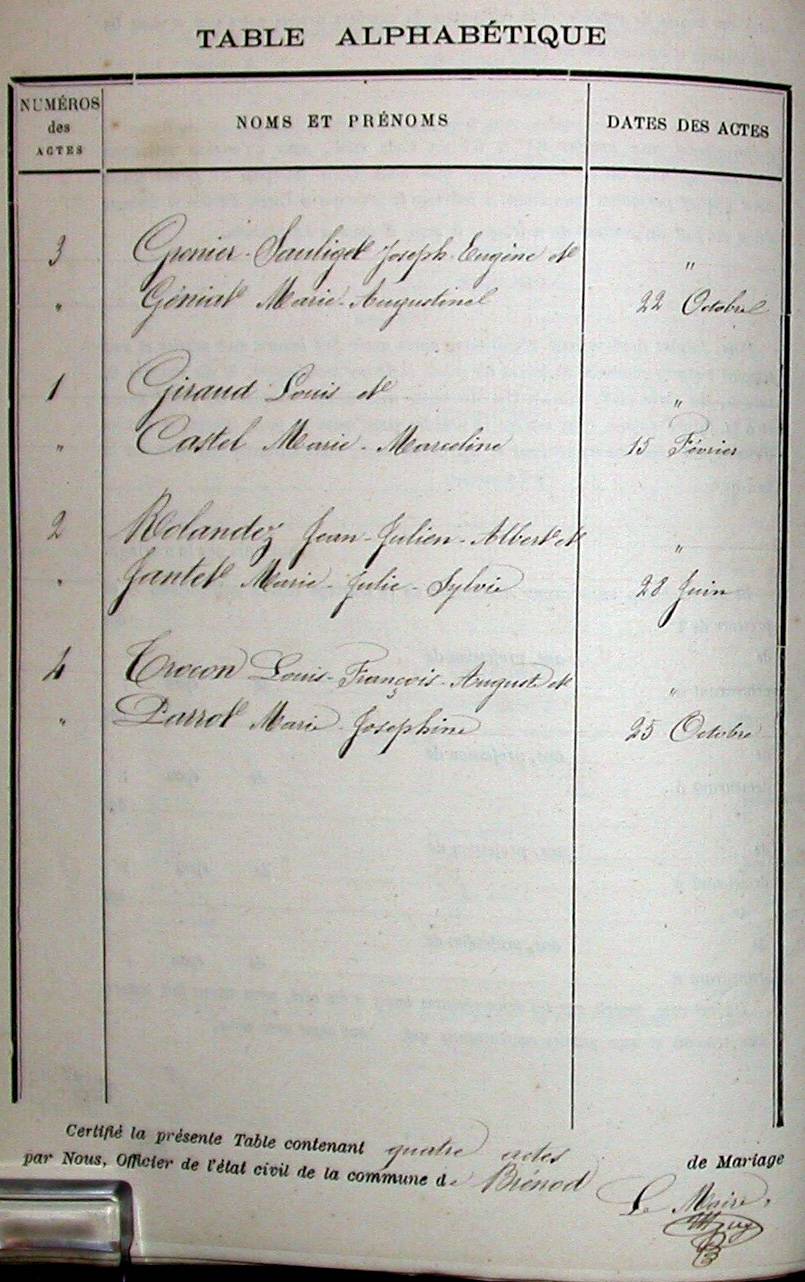 TABLE ALPHABÉTIQUE
NUMÉROS des ACTES
NOMS ET PRÉNOMS
DATES DES ACTES
3 Grenier-Sauliget Joseph-Eugène et "
" Génial Marie-Augustine 22 Octobre
1 Giraud Louis et "
" Castel Marie-Marceline 15 Février
2 Rolandez Jean-Julien-Albert et "
" Jantet Marie-Julie-Sylvie 28 Juin
4 Crocon Louis-François-August et "
" Parrot Marie-Josephine 25 Octobre
Certifié la présente Table contenant quatre actes de Mariage
par Nous, Officier de l'état civil de la commune de Brénod
Le Maire,